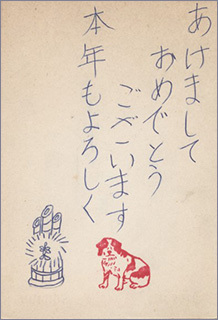 あけまして
おめでとう
ございます
本年もよろしく